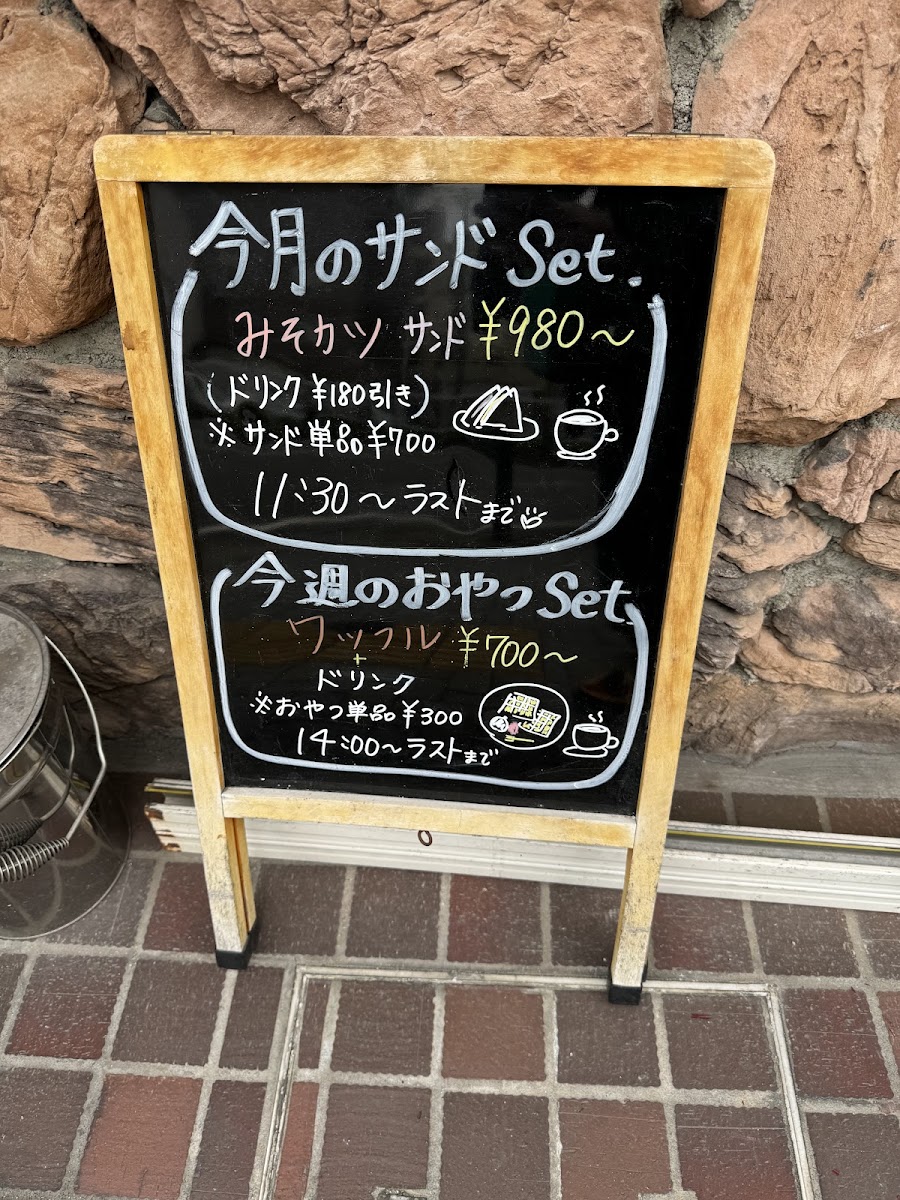 今月のサンド Set.
みそカツ サンド ¥980〜
(ドリンク ¥180引き)
※ サンド単品 ¥700
11:30 〜 ラストまで
今週のおやつ Set.
ワッフル ¥700〜
+
ドリンク
※おやつ単品 ¥300
14:00〜ラストまで